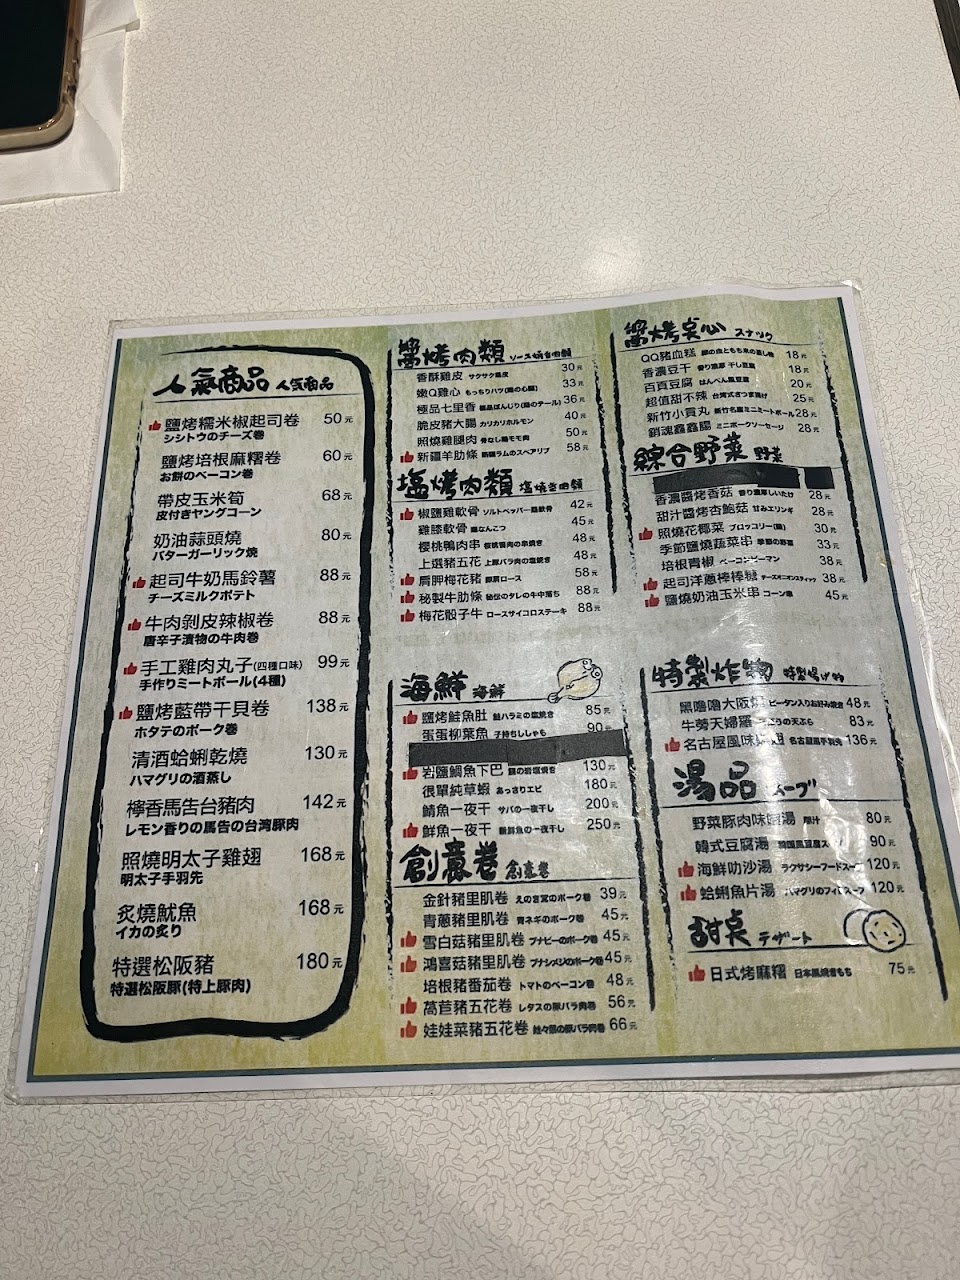 人氣商品 人気商品
鹽烤糯米椒起司卷 50元
シシトウのチーズ巻
鹽烤培根麻糬卷 60元
お餅のベーコン巻
帶皮玉米筍 68元
皮付きヤングコーン
奶油蒜頭燒 80元
バターガーリック焼
起司牛奶馬鈴薯 88元
チーズミルクポテト
牛肉剝皮辣椒卷 88元
唐辛子漬物の牛肉巻
手工雞肉丸子(四種口味) 99元
手作りミートボール(4種)
鹽烤藍帶干貝卷 138元
ホタテのポーク巻
清酒蛤蜊乾燒 130元
ハマグリの酒蒸し
檸香馬告台豬肉 142元
レモン香りの馬告の台湾豚肉
照燒明太子雞翅 168元
明太子手羽先
炙燒魷魚 168元
イカの炙り
特選松阪豬 180元
特選松阪豚(特上豚肉)
醬烤肉類 ソース焼き肉類
香酥雞皮 サクサク鶏皮 30元
嫩Q雞心 もっちりハツ(鶏の心臓) 33元
極品七里香 極品ぼんじり(鶏のテール) 36元
脆皮豬大腸 カリカリホルモン 40元
照燒雞腿肉 骨なし鶏モモ肉 50元
新疆羊肋條 新疆ラムのスペアリブ 58元
塩烤肉類 塩焼き肉類
椒鹽雞軟骨 ソルトペッパー鶏軟骨 42元
雞膝軟骨 鶏なんこつ 45元
櫻桃鴨肉串 桜桃鴨肉の串焼き 48元
上選豬五花 上豚バラ肉の塩焼き 48元
肩胛梅花豬 豚肩ロース 58元
秘製牛肋條 秘伝のタレの牛中落ち 88元
梅花骰子牛 ロースサイコロステーキ 88元
海鮮 海鮮
鹽烤鮭魚肚 鮭ハラミの塩焼き 85元
蛋蛋柳葉魚 子持ちししゃも 90元
岩鹽鯛魚下巴 130元
很單純草蝦 あっさりエビ 180元
鯖魚一夜干 サバの一夜干し 200元
鮮魚一夜干 新鮮魚の一夜干し 250元
創意卷 創意巻
金針豬里肌卷 えのき茸のポーク巻 39元
青蔥豬里肌卷 青ネギのポーク巻 45元
雪白菇豬里肌卷 ブナピーのポーク巻 45元
鴻喜菇豬里肌卷 ブナシメジのポーク巻 45元
培根豬番茄卷 トマトのベーコン巻 48元
萵苣豬五花卷 レタスの豚バラ肉巻 56元
娃娃菜豬五花卷 娃々菜の豚バラ肉巻 66元
醬烤桌心 スナック
QQ豬血糕 豚の血ともち米の蒸し物 18元
香濃豆干 香り濃厚 干し豆腐 18元
百頁豆腐 はんぺん風豆腐 20元
超值甜不辣 台湾式さつま揚げ 25元
新竹小貢丸 新竹名産ミニミートボール 28元
銷魂鑫鑫腸 ミニポークソーセージ 28元
綜合野菜 野菜
香濃醬烤香菇 香り濃厚しいたけ 28元
甜汁醬烤杏鮑菇 甘みエリンギ 28元
照燒花椰菜 ブロッコリー 30元
季節鹽燒蔬菜串 季節の野菜 33元
培根青椒 ベーコンピーマン 38元
起司洋蔥棒棒糖 チーズオニオンスティック 38元
鹽燒奶油玉米串 コーン串 45元
特製炸物 特製揚げ物
黑嚕嚕大阪燒 ピータン入りお好み焼き 48元
牛蒡天婦羅 ごぼうの天ぷら 83元
名古屋風味雞翅 名古屋風手羽先 136元
湯品 スープ
野菜豚肉味噌湯 豚汁 80元
韓式豆腐湯 韓国風豆腐スープ 90元
海鮮叻沙湯 ラクサシーフードスープ 120元
蛤蜊魚片湯 ハマグリのフィレスープ 120元
甜桌 デザート
日式烤麻糬 日本風焼きもち 75元